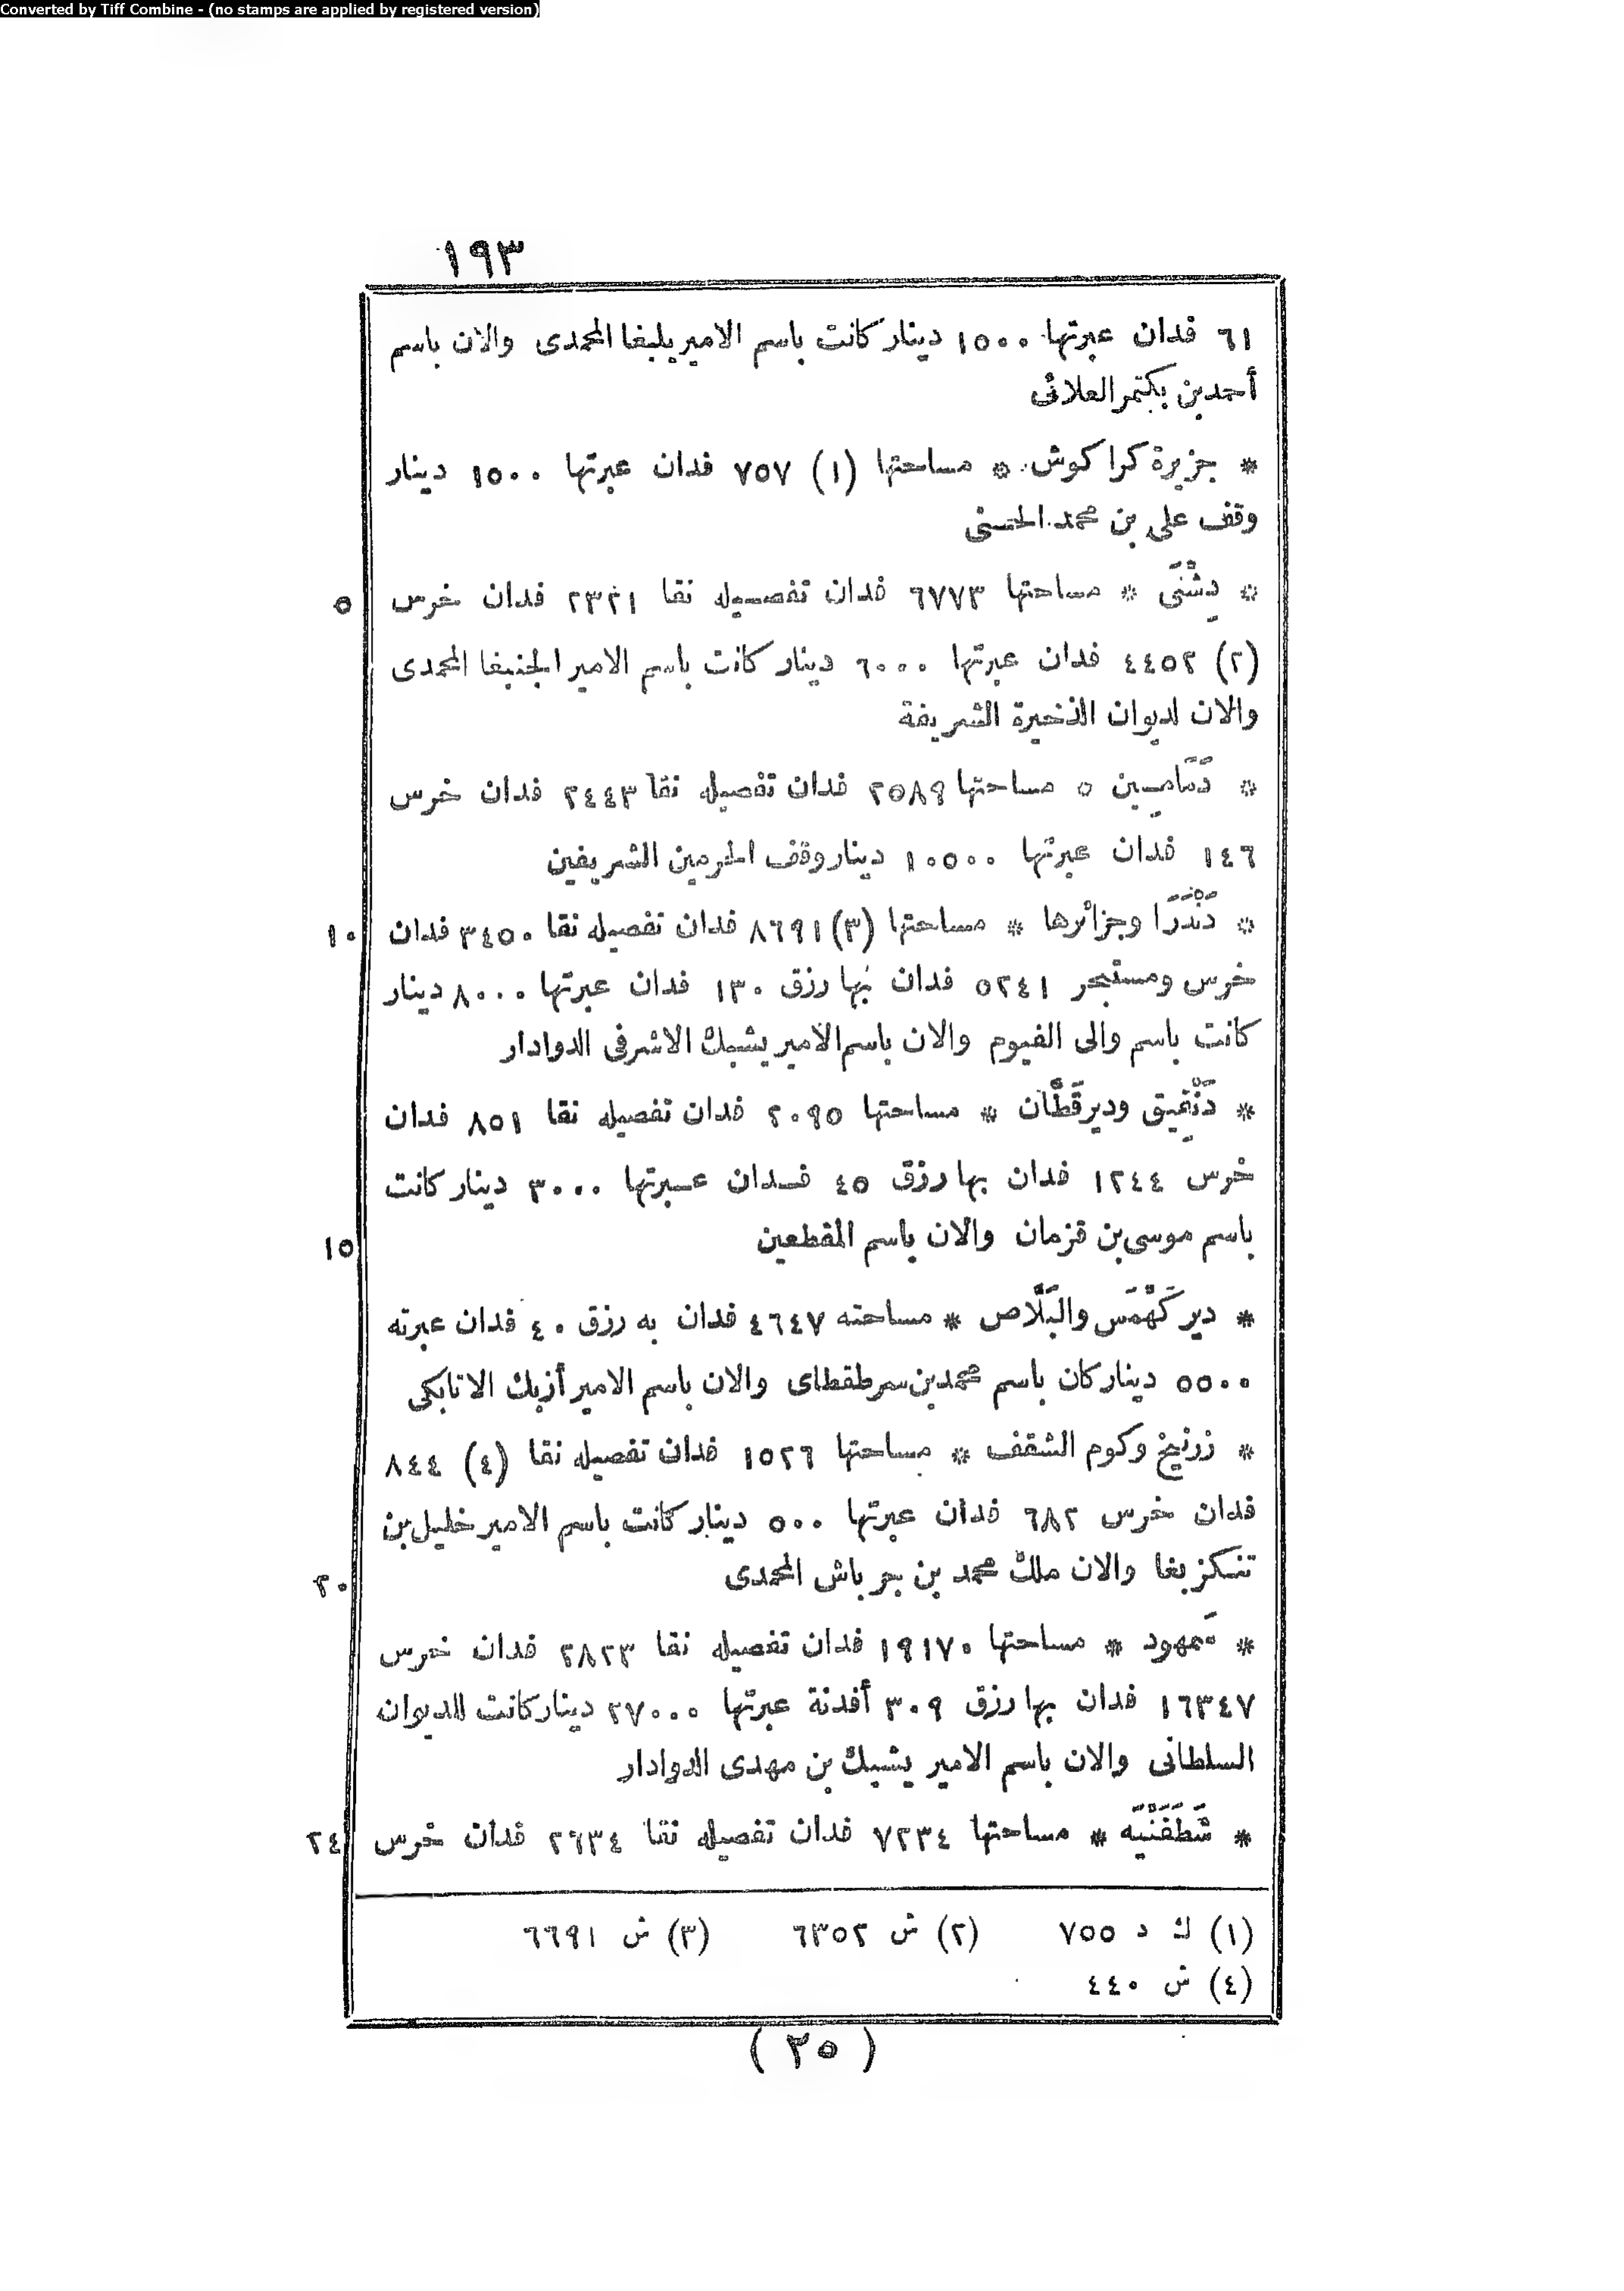 Converted by Tiff Combine - (no stamps are applied by registered version)
١٩٣
٦١ فدان عبرتها ١٥٠٠ دينار كانت باسم الامير يلبغا المحمدى والان باسم
أحمد بن بكتمر العلائى
* جزيرة كراكوش * مساحتها (١) ٧٥٧ فدان عبرتها ١٥٠٠ دينار
وقف على بن محمد الحسنى
* دِشْنَى * مساحتها ٦٧٧٣ فدان تفصيله نقا ٢٣٢١ فدان خرس ٥
(٢) ٤٤٥٢ فدان عبرتها ٦٠٠٠ دينار كانت باسم الامير الجنبغا المحمدى
والان لديوان الذخيرة الشريفة
* دَمَامِين * مساحتها ٢٥٨٩ فدان تفصيله نقا ٢٤٤٣ فدان خرس
١٤٦ فدان عبرتها ١٠٥٠٠ دينار وقف الحرمين الشريفين
* دَنْدَرَا وجزائرها * مساحتها (٣) ٨٦٩١ فدان تفصيله نقا ٣٤٥٠ فدان ١٠
خرس ومستبحر ٥٢٤١ فدان بها رزق ١٣٠ فدان عبرتها ٨٠٠٠ دينار
كانت باسم والى الفيوم والان باسم الامير يشبك الاشرفى الدوادار
* دَنْفِيق ودير قَطَّان * مساحتها ٢٠٩٥ فدان تفصيله نقا ٨٥١ فدان
خرس ١٢٤٤ فدان بها رزق ٤٥ فدان عبرتها ٣٠٠٠ دينار كانت
باسم موسى بن قزمان والان باسم المقطعين ١٥
* دير كَهْمَس والبَلَّاص * مساحته ٤٦٤٧ فدان به رزق ٤٠ فدان عبرته
٥٥٠٠ دينار كان باسم محمد بن سرطقطاى والان باسم الامير أزبك الاتابكى
* زرنيخ وكوم الشقف * مساحتها ١٥٢٦ فدان تفصيله نقا (٤) ٨٤٤
فدان خرس ٦٨٢ فدان عبرتها ٥٠٠ دينار كانت باسم الامير خليل بن
تنكز بغا والان ملك محمد بن جرباش المحمدى ٢٠
* سَمهود * مساحتها ١٩١٧٠ فدان تفصيله نقا ٢٨٢٣ فدان خرس
١٦٣٤٧ فدان بها رزق ٣٠٩ أفدنة عبرتها ٢٧٠٠٠ دينار كانت للديوان
السلطانى والان باسم الامير يشبك بن مهدى الدوادار
* شَطَفَنْيَه * مساحتها ٧٢٣٤ فدان تفصيله نقا ٢٦٣٤ فدان خرس ٢٤
(١) ك د ٧٥٥ (٢) ش ٦٣٥٢ (٣) ش ٦٦٩١
(٤) ش ٤٤٠
( ٢٥ )